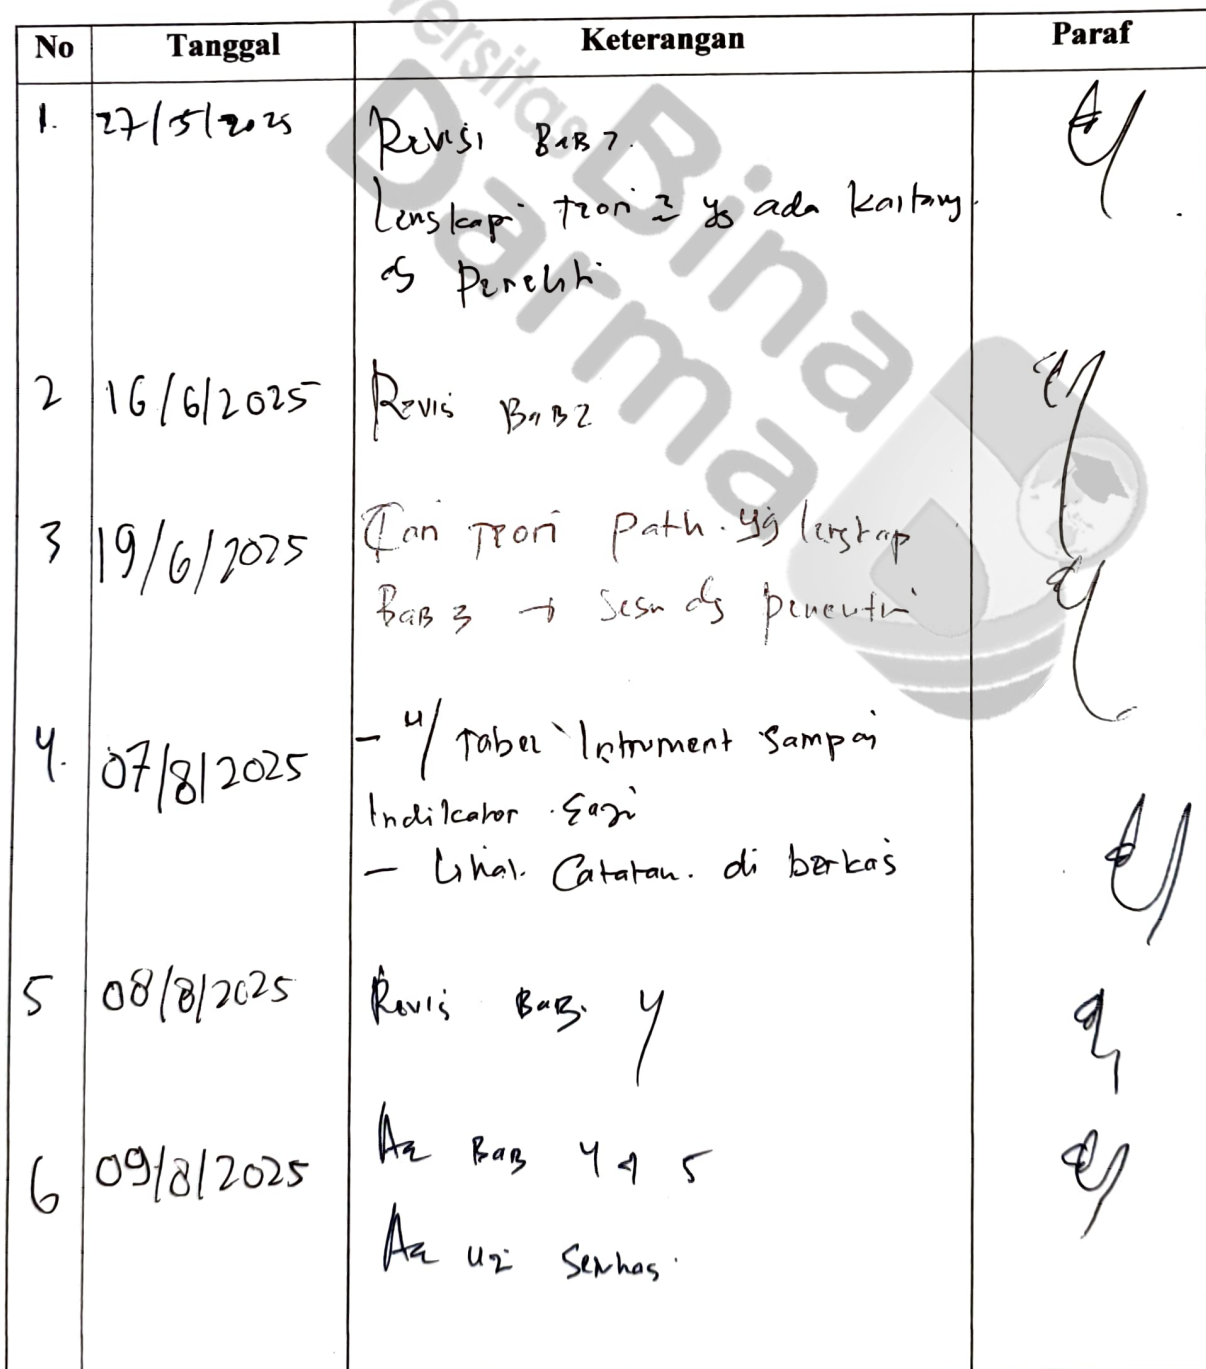 Universitas
Bina
Darma
No Tanggal Keterangan Paraf
1. 27/5/2025 Revisi BAB 2.
Lengkapi teori2 yg ada kaitany
dg peneliti
2 16/6/2025 Revisi BAB 2
3 19/6/2025 Cari Teori path. yg lengkap
BAB 3 → sesu dg peneliti
4. 07/8/2025 - u/ Tabel Intrument sampai
Indikator
- Lihat. Catatan. di berkas
5 08/8/2025 Revisi BAB. 4
6 09/8/2025 Acc BAB 4 & 5
Acc uji Semhas.